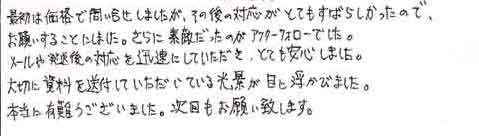 最初は価格で問い合せしましたが、その後の対応がとてもすばらしかったので、
お願いすることにしました。さらに素敵だったのがアフターフォローでした。
メールや発送後の対応を迅速にしていただき、とても安心しました。
大切に資料を送付していただいている光景が目に浮かびました。
本当に有難うございました。次回もお願い致します。